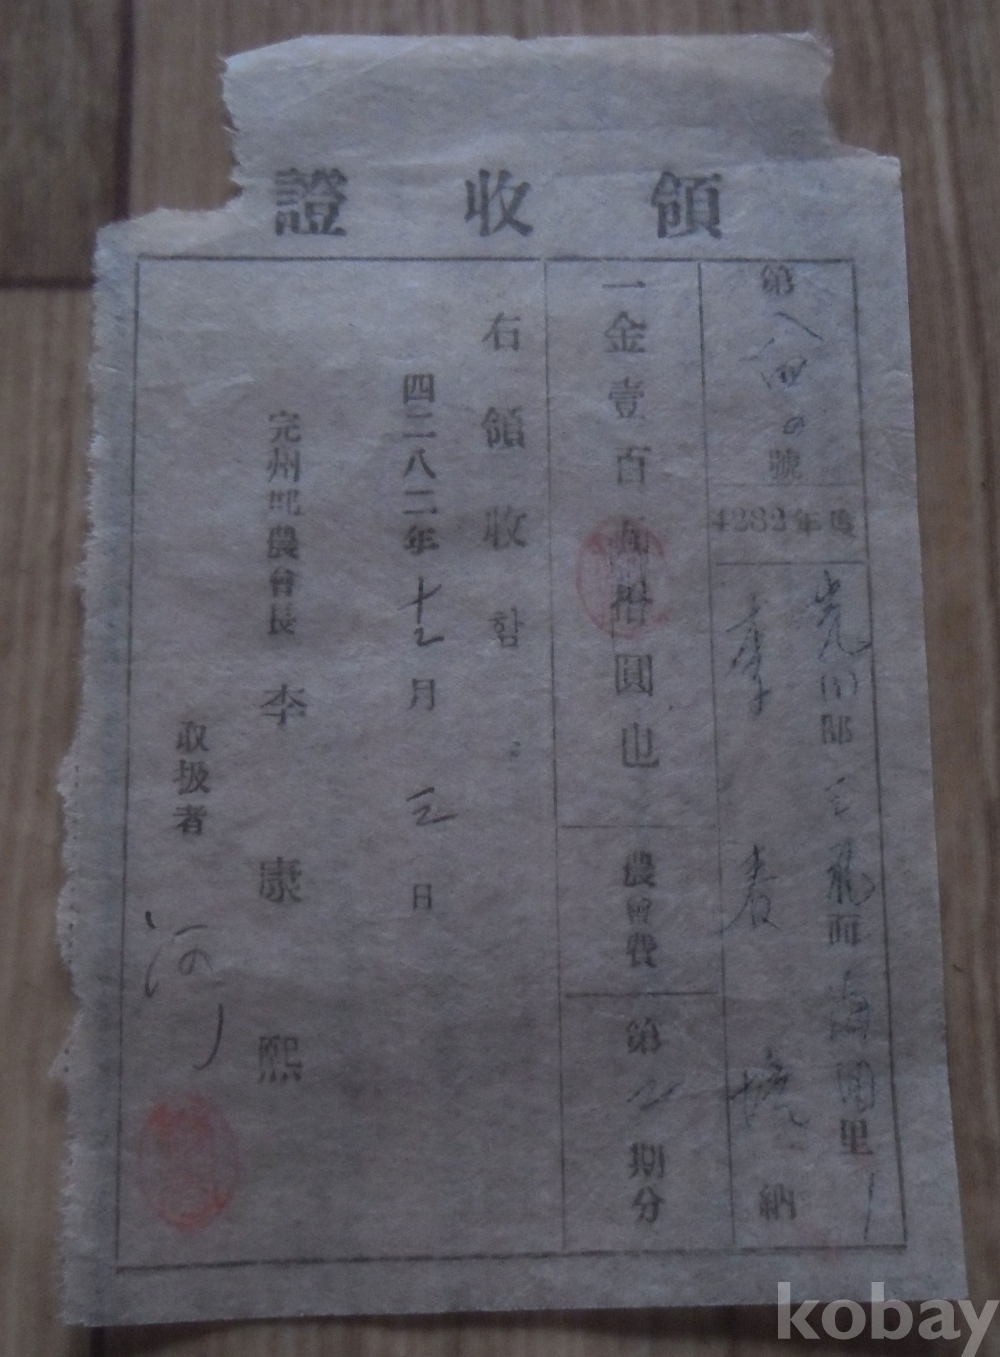 領收證
第八四〇號
4282年度
完州郡 三 面 里
李 春 納
一金壹百五拾圓也
農會費
第 期分
右領收함
四二八二年十二月三日
完州郡農會長 李康熙
取扱者 河
kobay